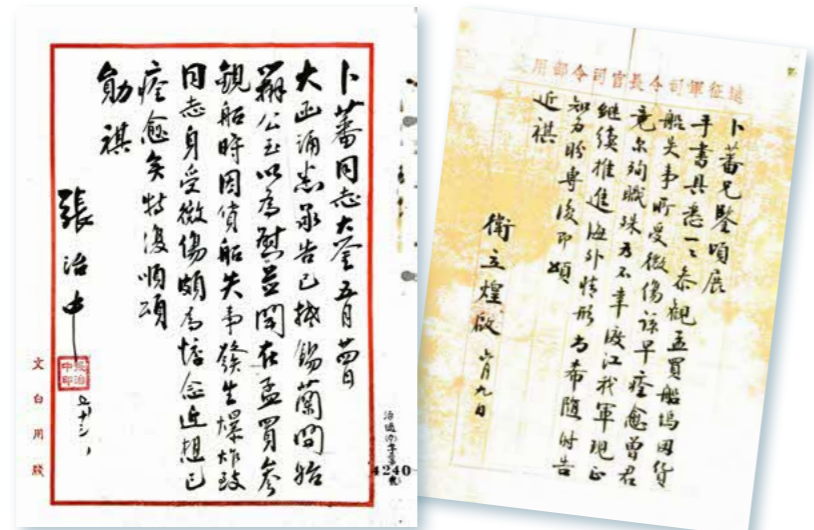 卜蕃同志大鉴五月廿四日
大函诵悉承告已抵锡兰開始
辦公至以為慰並聞在孟買參
觀船時因貨船失事發生爆炸致
同志身受微傷頗為懷念近想已
痊愈矣特復順頌
勛祺
張治中
張治中印
文白用牋
4240
遠征軍司令長官司令部用
卜蕃兄鑒頃展
手書具悉一一參觀孟買船塢因貨
船失事所受微傷諒早痊愈曾君
竟尔殉職殊為不幸渡江我軍現正
繼續推進海外情形尚希隨時告
知為盼專復即頌
近祺
衛立煌啟 六月九日